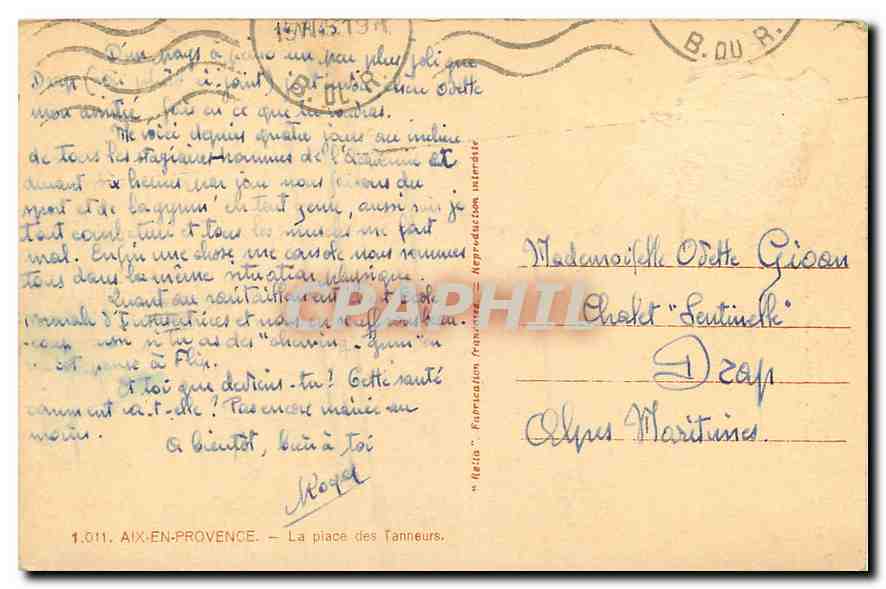 15 VII 45 19H
B. DU R.
B. DU R.
D'un pays à peine un peu plus joli que
Drap ci-joint chère Odette
mon amitié, fais en ce que tu voudras.
Me voici depuis quatre jours au milieu
de tous les stagiaires-hommes de l'académie et
durant six heures par jour nous faisons du
sport et de la gymn' en tout genre, aussi suis je
tout courbaturé et tous les muscles me font
mal. Enfin une chose me console nous sommes
tous dans la même situation physique.
Quant au ravitaillement école
normale d'Institutrices et nous en souffrons beau-
coup si tu as des "chewing-gum"
pense à Flip.
Et toi que deviens-tu? Cette santé
comment va-t-elle? Pas encore mariée au
moins.
A bientôt, bien à toi
Roger
Mademoiselle Odette Gioan
Chalet "Sentinelle"
Drap
Alpes Maritimes.
"Rella" Fabrication française - Reproduction interdite
CPAPHIL
1.011. AIX-EN-PROVENCE. - La place des Tanneurs.